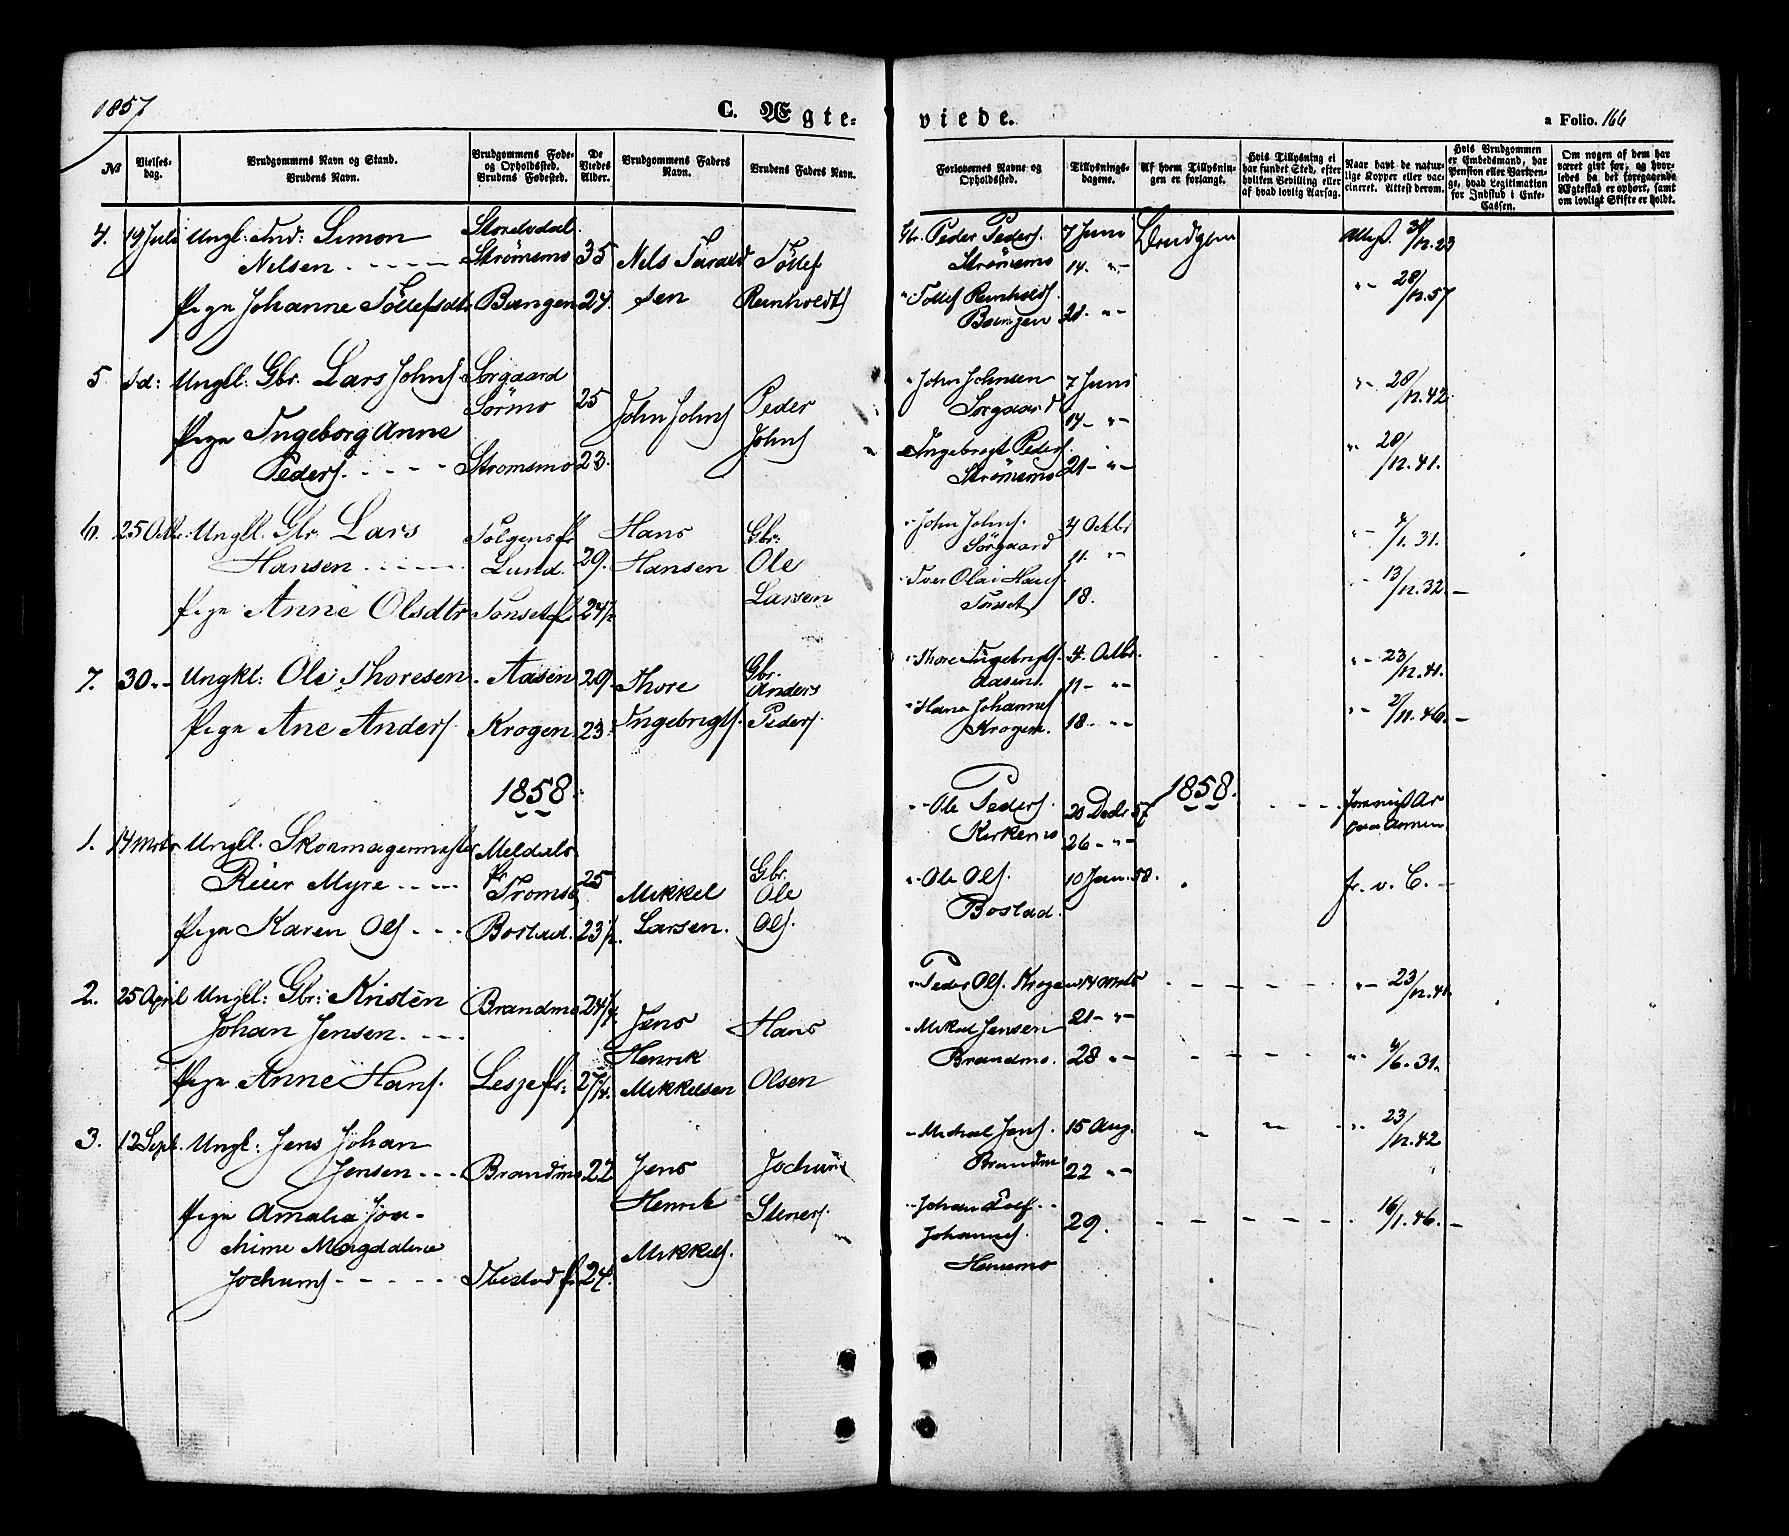 1857
C. Ægte-
viede.
a Folio. 166
№
Vielses-
dag.
Brudgommens Navn og Stand.
Brudens Navn.
Brudgommens Føde-
og Opholdssted.
Brudens Fødested.
De
Viedes
Alder.
Brudgommens Faders
Navn.
Brudens Faders Navn.
Forlovernes Navne og
Opholdssted.
Tillysnings-
dagene.
Af hvem Tillysnin-
gen er forlangt.
Hvis Tillysning ei
har fundet Sted, efter
hvilken Bevilling eller
af hvad lovlig Aarsag.
Naar havt de natur-
lige Kopper eller vac-
cineret. Attest derom.
Hvis Brudgommen
er Embedsmand, har
Pension eller Vartpen-
ge, hvad Legitimation
for Indskud i Enke-
Cassen.
Om nogen af dem har
været gift før, og hvor-
ledes da det foregaaende
Ægteskab er ophørt, samt
om lovligt Skifte er holdt.
4. 19 Juli Ungk: Ind: Simon
Nilsen
Strömsmo 35 Nels Tarald
sen
Töllef
Reinholdts
Pige Johanne Töllefsdtr Bangen 24.
Gbr. Peder Peders.
Strömsmo
Tollef Reinholds.
Bangen
7 Juni
14. "-
21. "-
Brudgom
Attest.
28/12.57
5. Ungkl: Gbr. Lars Johns. Sorgaard
Sörmo 25 John Johns. Peder
Johns.
Pige Ingeborg Anne
Peders. Stromsmo 23.
John Johnsen
Sorgaard
Ingebrigt Peders.
Strömsmo
7 Juni
14- "-
21- "-
28/12.42.
20/12.41.
6. 25 Octbr. Ungkl. Gbr. Lars
Hansen
Lund. 29. Hans
Hansen
Gbr:
Ole
Larsen
Pige Anne Olsdtr
John Johns.
Sörgaard
Iver Olai Hans.
Tönset
4 Octbr
11. "-
18.
7/1.31.
13/12.32.
7. 30 "- Ungkl: Ole Thoresen Aasen 29 Thore
Ingebrigts.
Gbr.
Anders
Peders.
Pige Ane Anders. Krogen 23.
Thore Ingebrigts.
Aasen.
Hans Johannes.
Krogen.
4. Octbr.
11- "-
18- "-
23/12.41.
2/11.46.
1858.
1858.
1. 14 Marts Ungkl. Skomagermester
Reier Myre
Meldals
Pr
Tromsö 25 Mikkel
Larsen.
Gbr.
Ole
Ols.
Pige Karen Ols. Bostad. 23½.
Ole Peders.
Kirkemo
Ole Ols.
Bostad.
20 Decbr 57
26 "-
10 Jan. 58.
fr. v. C.
2. 25 April Ungkl: Gbr: Kristen
Johan Jensen.
Brandmo 24 Jens
Henrik
Mikkelsen
Hans
Olsen
Pige Anne Hans. Lesje Pr: 27
Peder Ols. Krogen
Mikal Jensen
Brandmo.
14 Marts
21- "-
28 "-
23/12.41.
/6.31.
3. 12 Sept. Ungk: Jens Johan
Jensen Brandmo 22 Jens
Henrik
Mikkels.
Jochum
Steners.
Pige Amalia Joa-
chime Magdalene
Jochums Ibestad Pr 24.
Michael Jens.
Brandmo
Johan
Johannes.
15 Aug.
22 "-
29.
23/12.42
16/1.46.